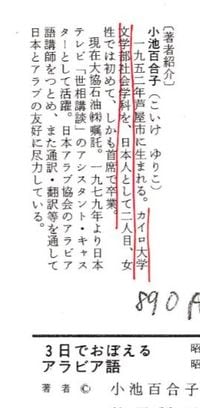 〔著者紹介〕
小池百合子(こいけ ゆりこ)
一九五二年芦屋市に生まれる。カイロ大学
文学部社会学科を、日本人として二人目、女
性では初めて、しかも首席で卒業。
現在大協石油㈱嘱託。一九七九年より日本
テレビ「世相講談」のアシスタント・キャス
ターとして活躍。日本アラブ協会のアラビア
語講師をつとめ、また通訳・翻訳等を通して
日本とアラブの友好に尽力している。
890
3日でおぼえる
アラビア語
著者 © 小池百合子
昭